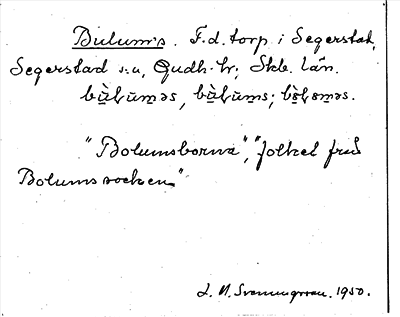 Bulum's. F.d. torp i Segerstad,
Segerstad s:n, Gudh. hr; Skb. län.
bùluməs, bùlums; bòloməs.
"Bolumsborna", "folket från
Bolums socken"
S. A. Svenningsson. 1950.